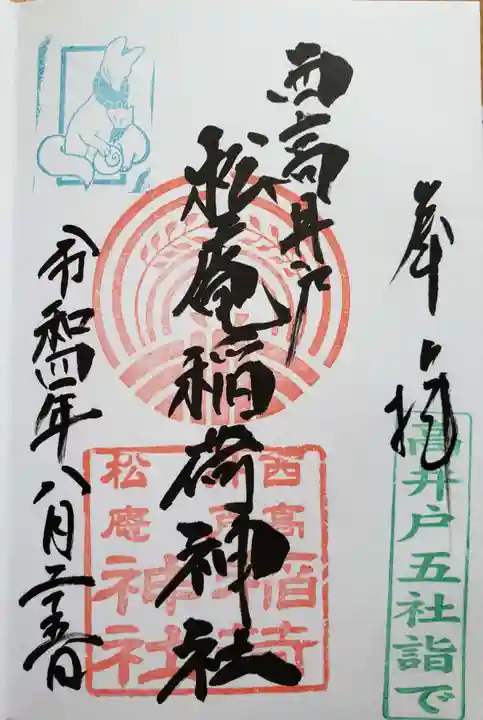 奉拝
高井戸五社詣で
西高井戸
松庵稲荷神社
西高井戸
松庵稲荷
神社
令和四年八月二十五日